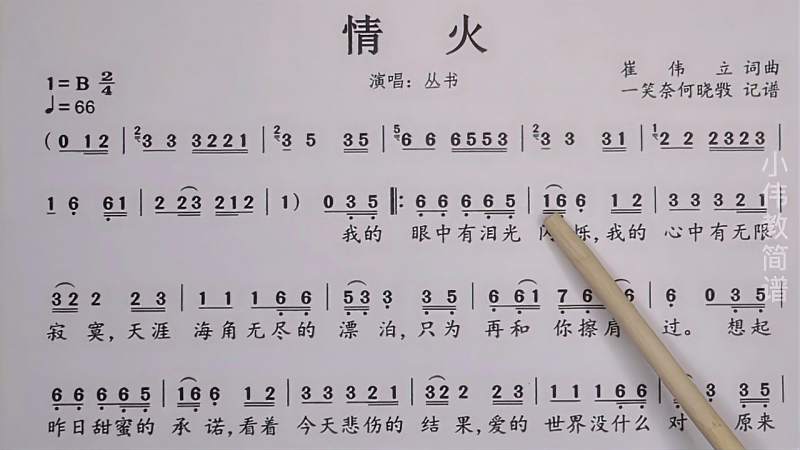 情 火
1=B 2/4
♩=66
演唱：丛书
崔 伟 立 词曲
一笑奈何晓斅 记谱
(0 12 | 23 3 3221 | 23 5 35 | 56 6 6553 | 23 3 31 | 12 2 2323 |
1 6 61 | 2 23 212 | 1) 0 35 ‖: 66 665 | 166 12 | 33 321 |
我的 眼中有泪光 闪烁,我的 心中有无限
322 23 | 11 166 | 533 35 | 6 61 76 6 | 6 0 35 |
寂寞,天涯 海角无尽的 漂泊,只为 再和你擦肩 过。想起
66 665 | 166 12 | 33 321 | 322 23 | 11 166
昨日甜蜜的 承诺,看着 今天悲伤的 结果,爱的 世界没什么 对 原来
小伟教简谱